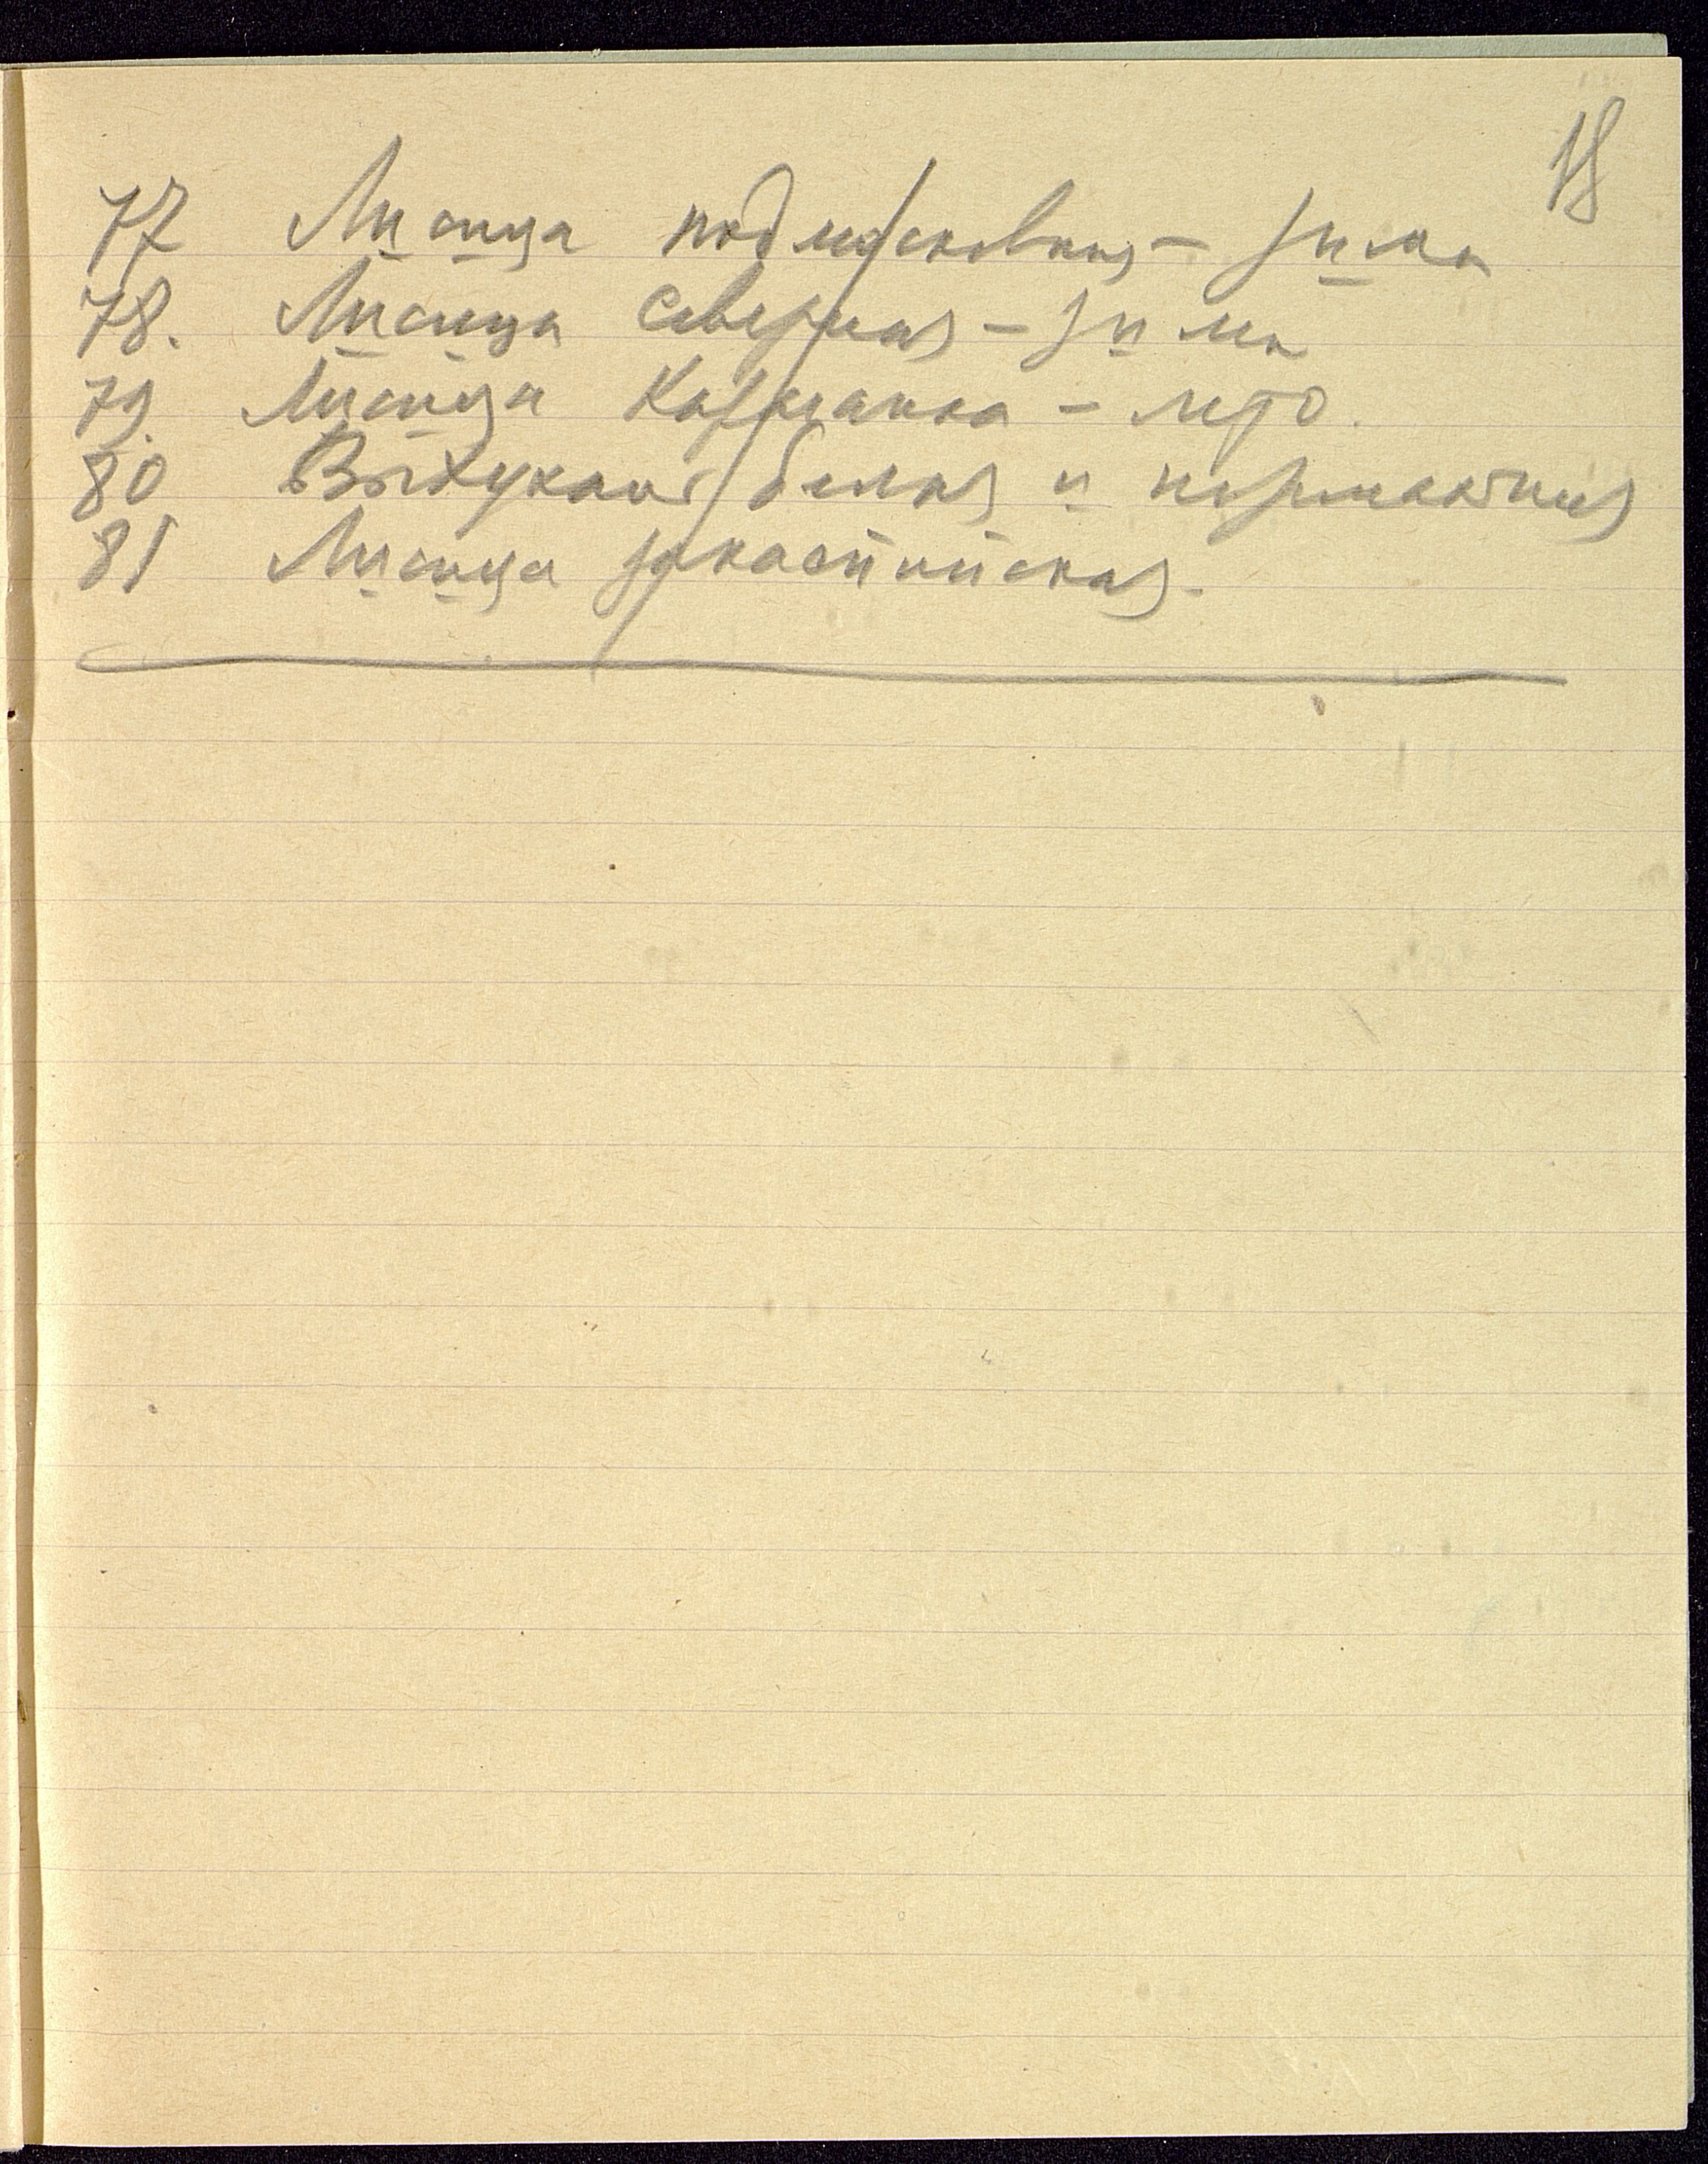 18
77 Лисица подмосковная – зима
78. Лисица Северная – зима
79. Лисица Карганка – лето.
80 Выхухоль белая и нормальная
81 Лисица закаспийская.